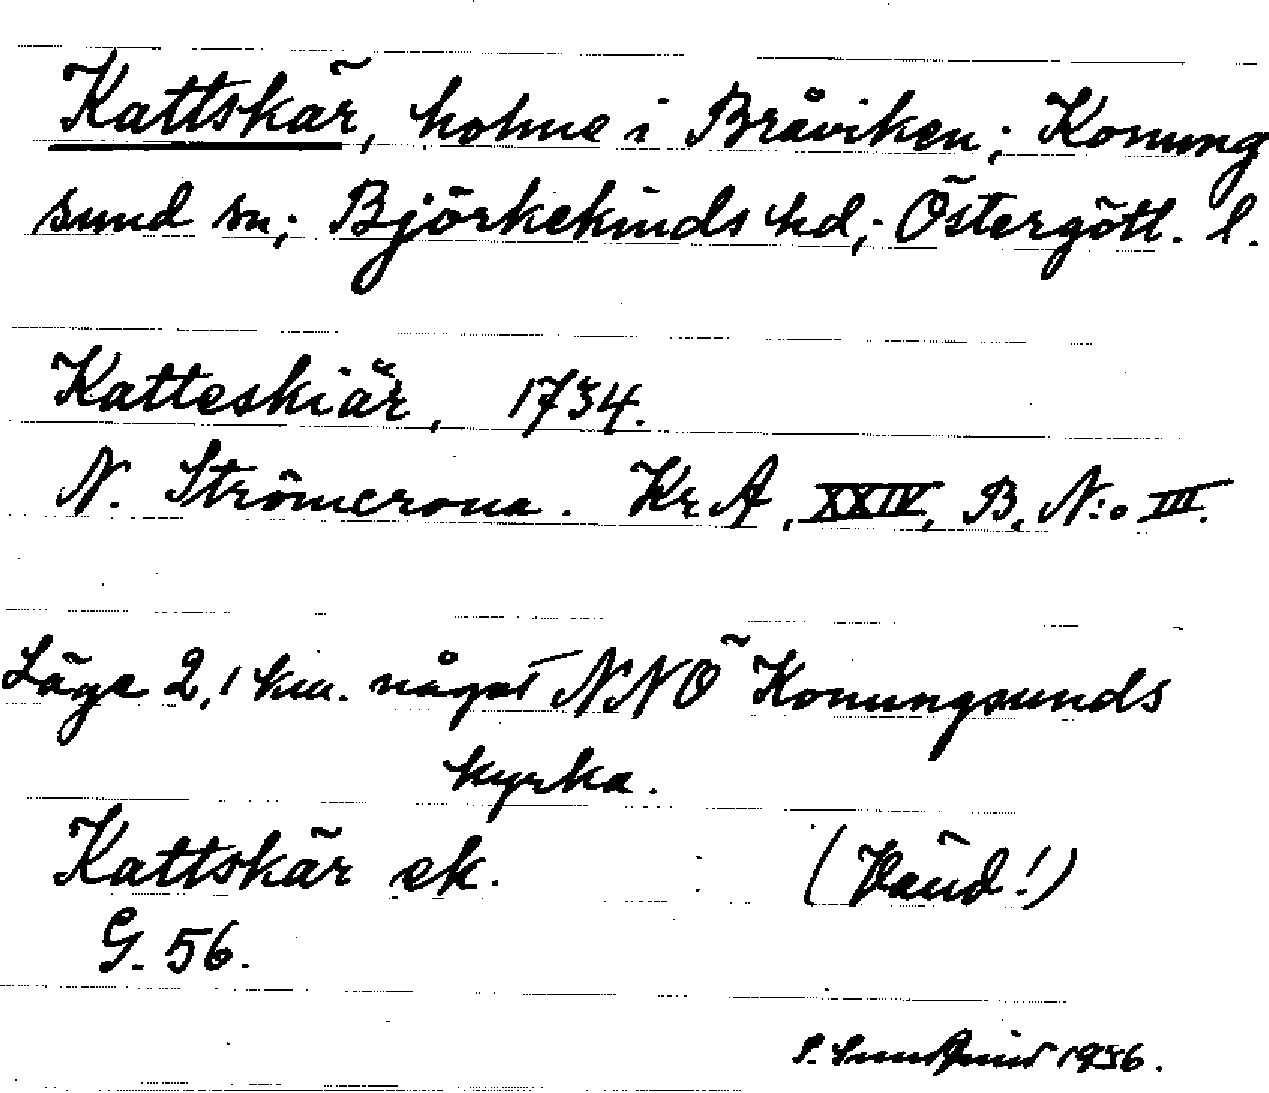 Kattskär, holme i Bråviken; Konung
sund sn; Björkekinds hd; Östergötl. l.
Katteskiär, 1734.
N. Strömcrona. Kr. A, XXIV, B, N:o III.
Läge 2,1 km. något NNÖ Konungsunds
kyrka.
Kattskär ek. (Vänd!)
G. 56.
1936.